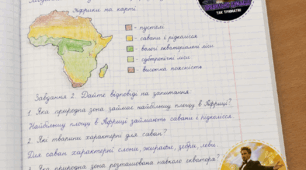 Африки на карті
- пустелі
- савани і рідколісся
- вологі екваторіальні ліси
- субтропічні ліси
- висотна поясність
Завдання 2. Дайте відповіді на запитання
1. Яка природна зона займає найбільшу площу в Африці?
Найбільшу площу в Африці займають савани і рідколісся.
2. Які тварини характерні для саван?
Для саван характерні слони, жирафи, зебри, леви.
3. Яка природна зона розташована навколо екватора?